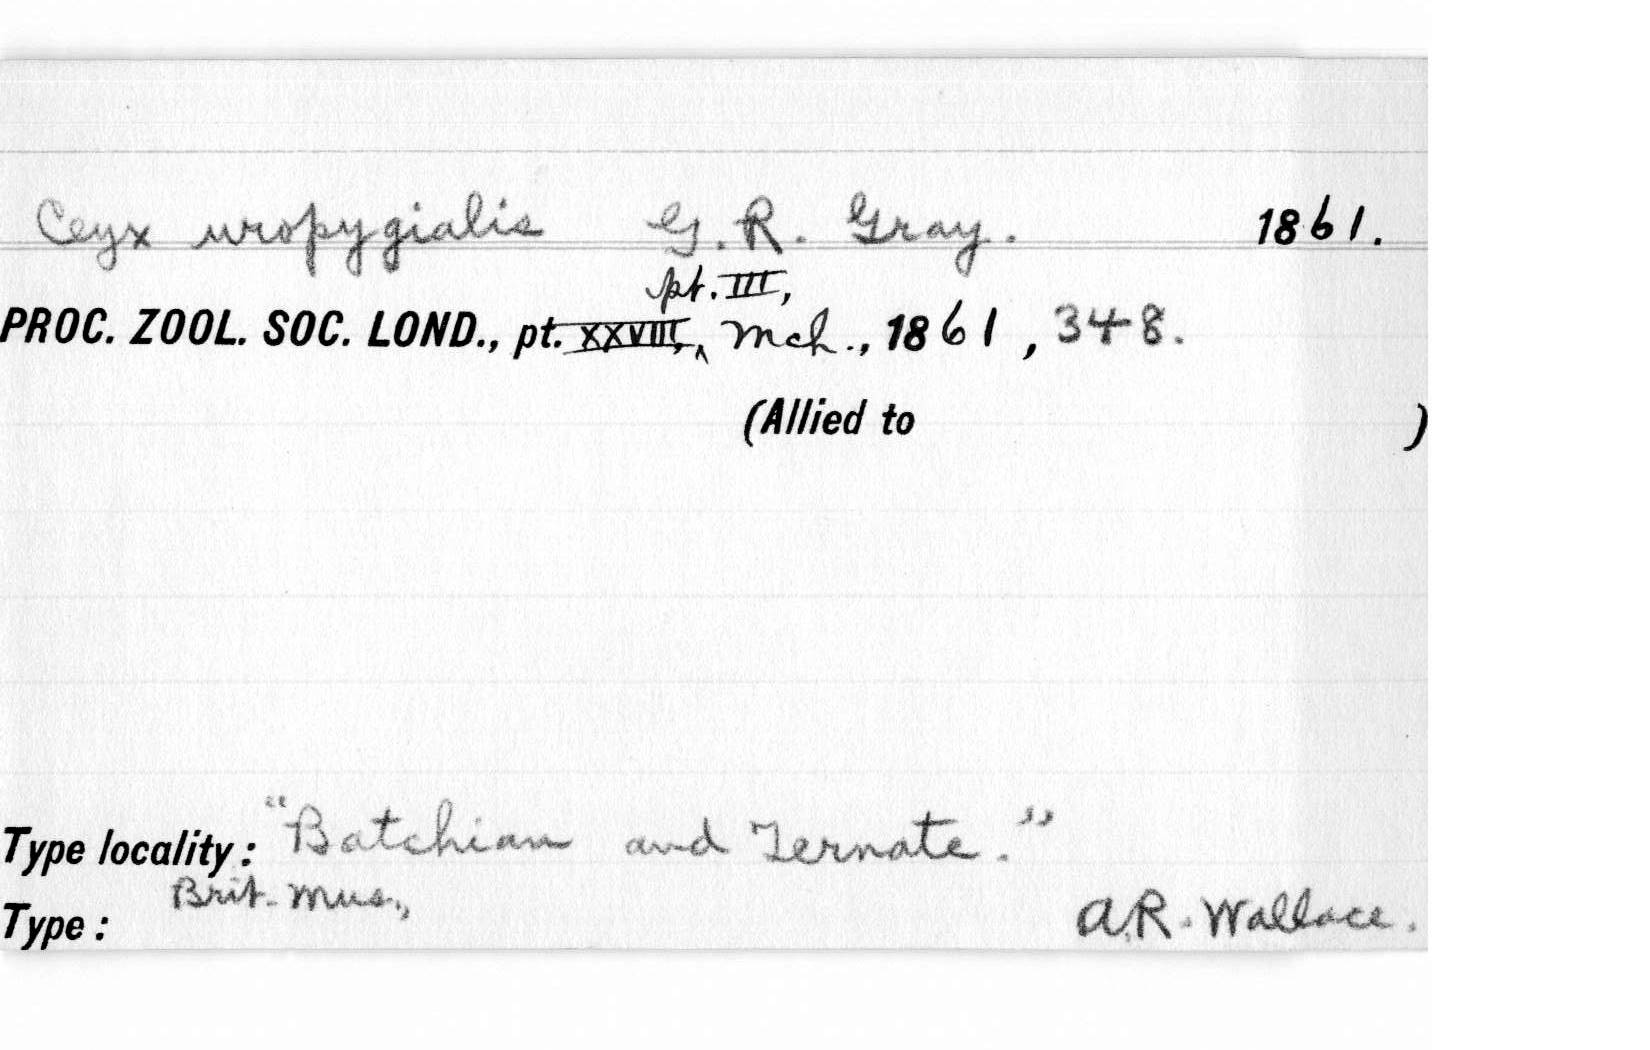 Ceyx uropygialis G. R. Gray. 1861.
pt. III,
PROC. ZOOL. SOC. LOND., pt. XXVIII, ^ Mch., 1861, 348.
(Allied to )
Type locality: "Batchian and Ternate."
Brit. Mus.,
Type: A.R. Wallace.